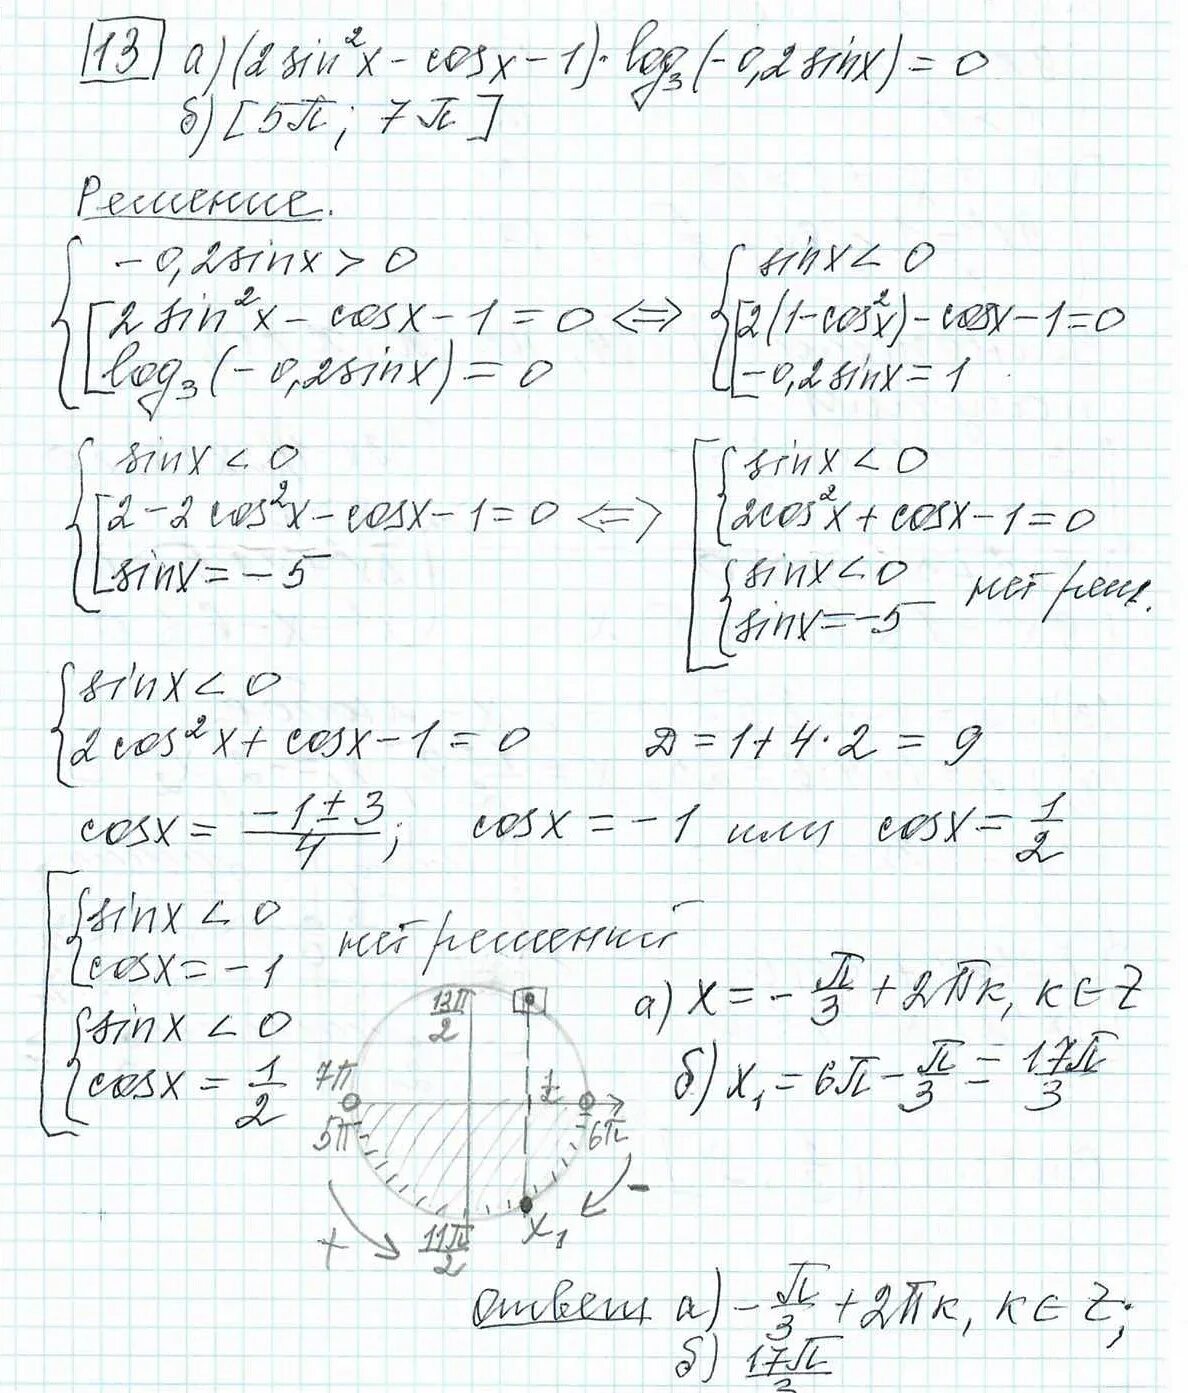 13 а) (2sin²x - cosx - 1)·log₃(-0,2sinx) = 0
б) [5π; 7π]
Решение.
{ -0,2sinx > 0
[ 2sin²x - cosx - 1 = 0 <=>
[ log₃(-0,2sinx) = 0
{ sinx < 0
[ 2(1-cos²x) - cosx - 1 = 0
[ -0,2sinx = 1
{ sinx < 0
[ 2 - 2cos²x - cosx - 1 = 0 <=>
[ sinx = -5
[ { sinx < 0
{ 2cos²x + cosx - 1 = 0
{ sinx < 0
{ sinx = -5 нет реш.
{ sinx < 0
{ 2cos²x + cosx - 1 = 0 D = 1 + 4·2 = 9
cosx = (-1 ± 3)/4; cosx = -1 или cosx = 1/2
[ { sinx < 0
{ cosx = -1 нет решений
{ sinx < 0
{ cosx = 1/2
13π/2
7π
5π
1/2
6π
11π/2
x₁
+
-
а) x = -π/3 + 2πк, к ∈ Z
б) x₁ = 6π - π/3 = 17π/3
ответ а) -π/3 + 2πк, к ∈ Z;
б) 17π/3